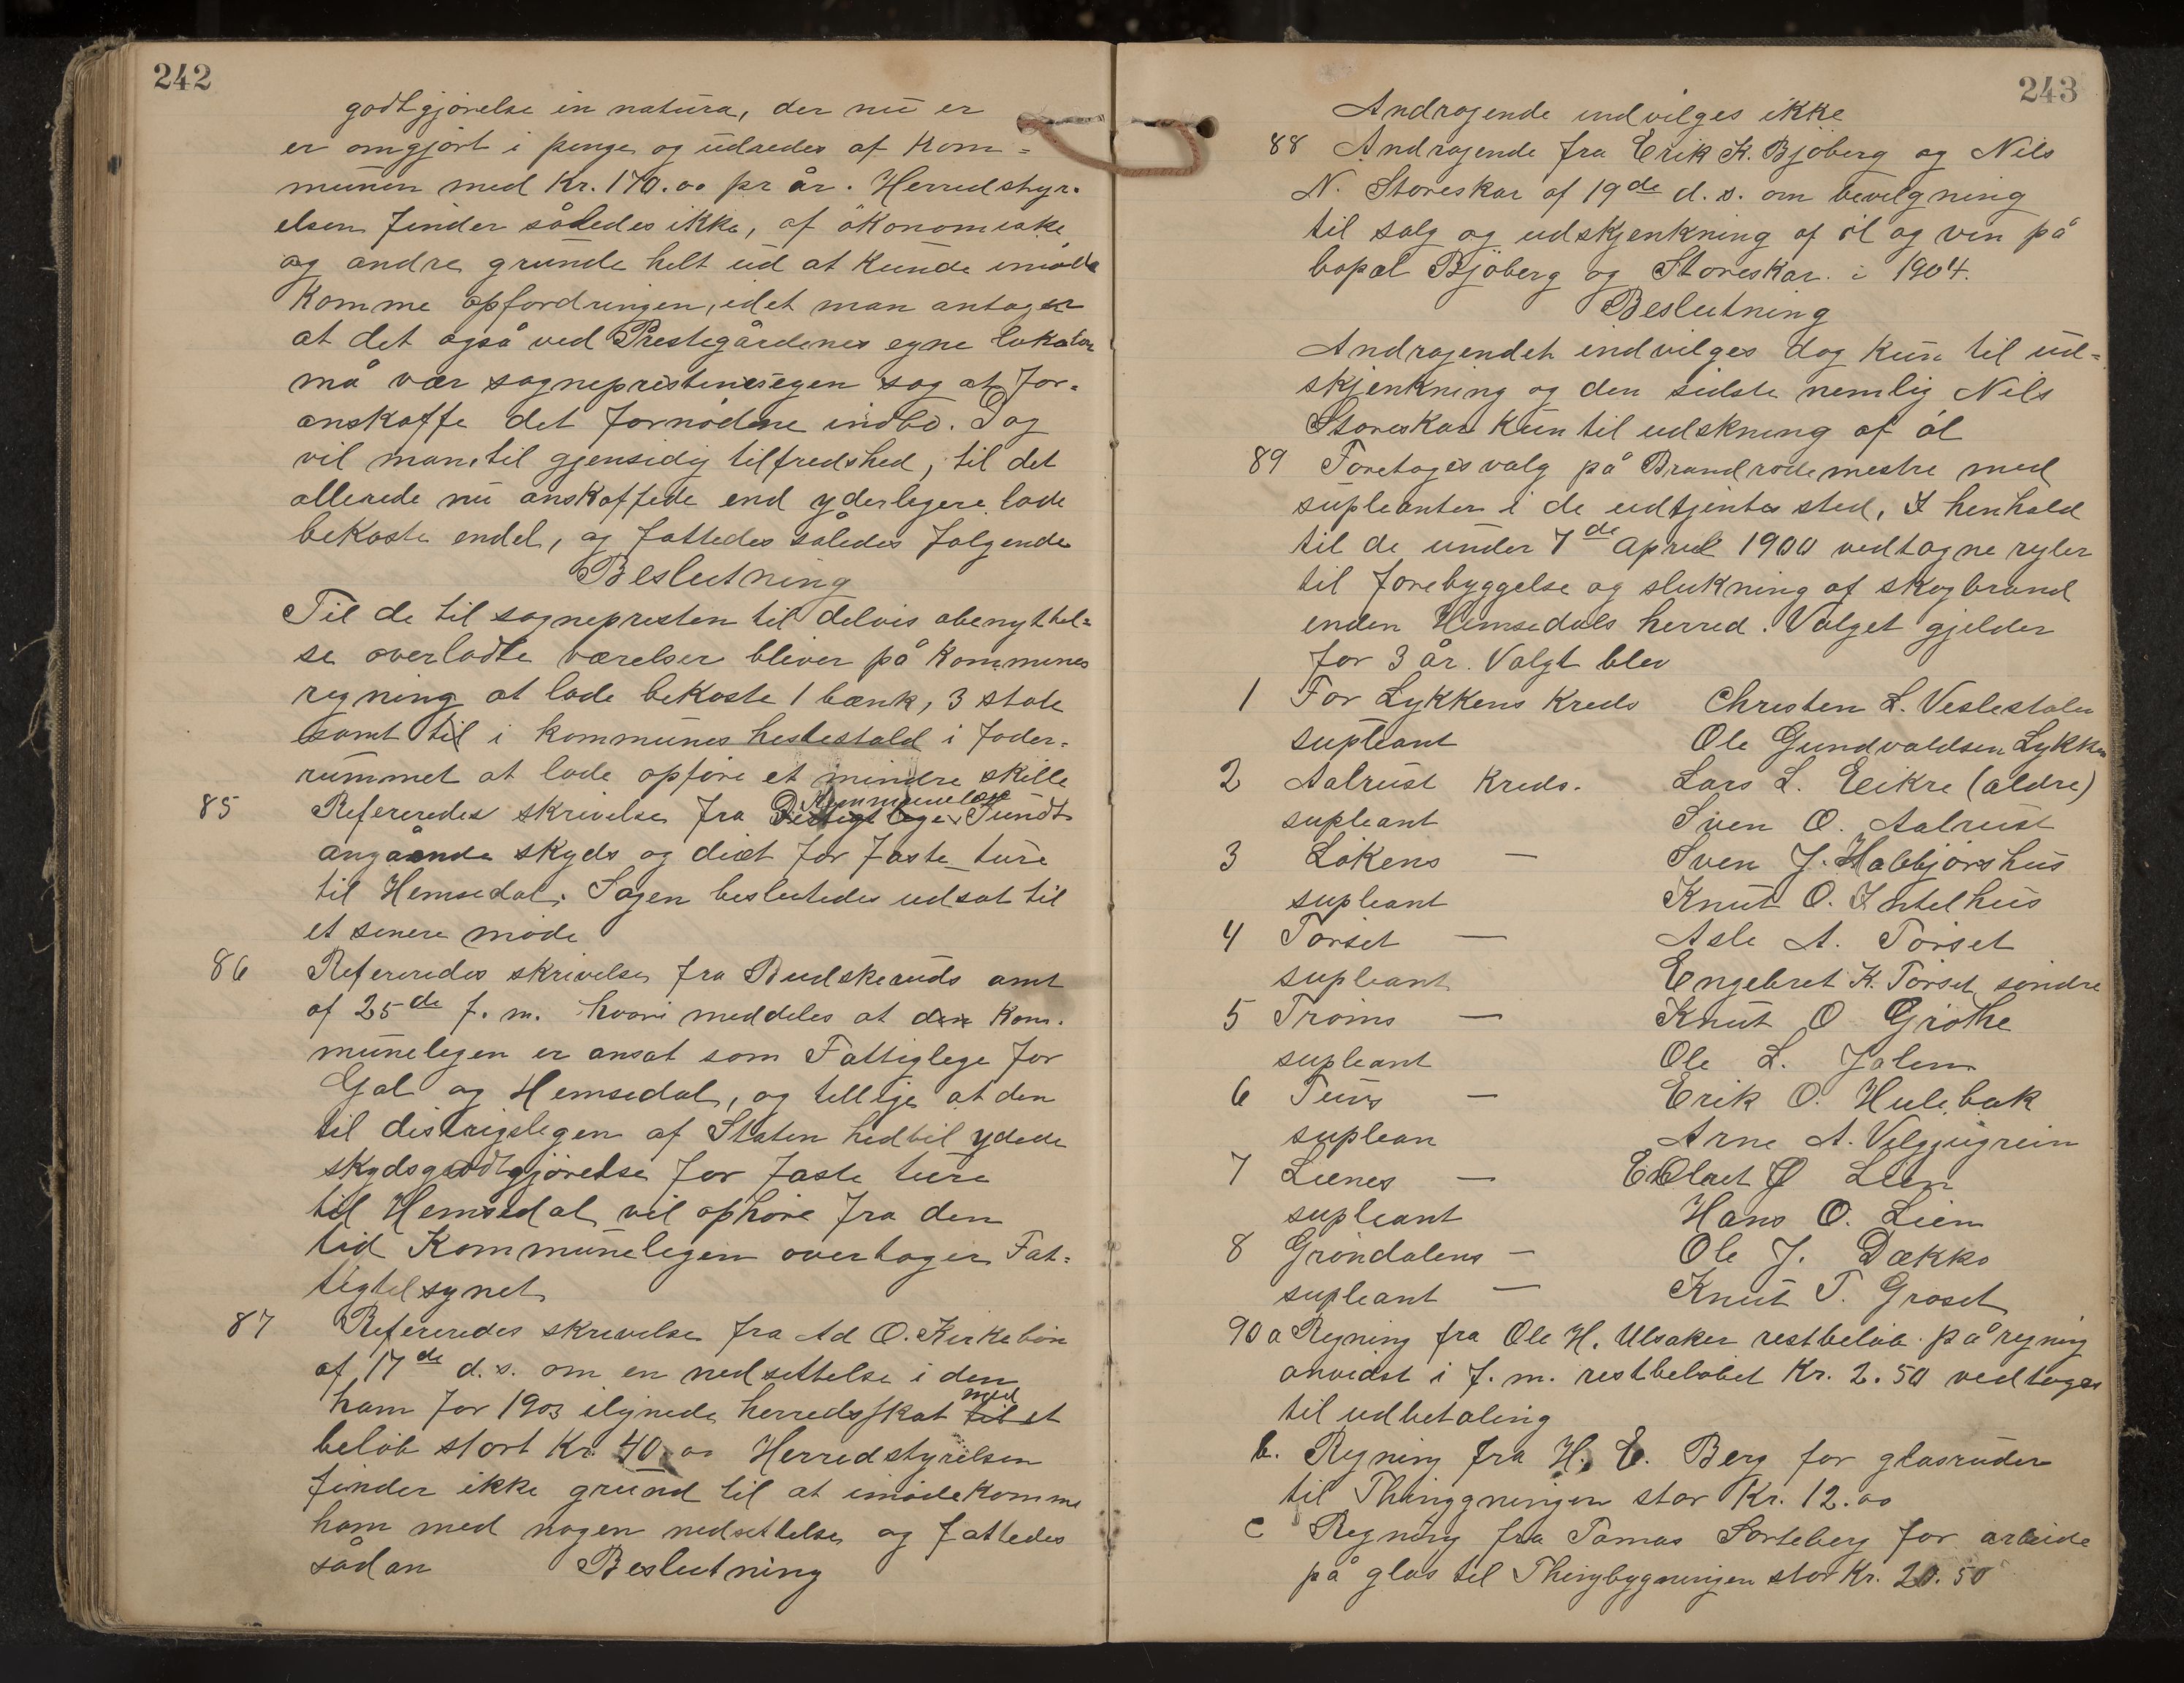 242
godtgjörelse in natura, der nu er
er omgjort i penge og udredes af Kom=
munen med Kr. 170.00 pr år. Herredstyr.
elsen finder således ikke, af ökonomiske
og andre grunde helt ud at kunde imöde
komme opfordringen, idet man antager
at det også ved Præstegårdenes egne
må vær sogneprestenes egen sag at for.
anskaffe det fornödne indbo. Dog
vil man, til gjensidig tilfredshed, til det
allerede nu anskaffede end yderligere lade
bekoste endel, og fattedes således fölgende
Beslutning
Til de til sognepresten til delvis abenyttel=
se overladte værelser bliver på Kommunes
regning at lade bekoste 1 bænk, 3 stole
samt til i kommunes hestestald i foder=
rummet at lade opföre et mindre skille
85 Refereredes skrivelse fra Kommunelæge Tundt
angående skyds og diæt for faste ture
til Hemsedal. Sagen beslutedes udsat til
et senere möde
86 Refereredes skrivelse fra Budskeruds amt
af 25de f. m. hvori meddeles at den Kom.
munelegen er ansat som Fattiglege for
Gol og Hemsedal, og tillige at den
til distrigslegen af Staten hedtil ydede
skydsgodtgjörelse for faste ture
til Hemsedal vil ophöre fra den
tid Kommunelegen overtager Fat=
tigtilsynet
87 Refereredes skrivelse fra Ad O. Kirkebön
af 17de d. s. om en nedsettelse i den
ham for 1903 ilignede herredsskat med til et
belöb stort Kr. 40.00 Herredstyrelsen
finder ikke grund til at imödekomme
ham med nogen nedsettelse og fattedes
sådan Beslutning
243
Andragende indvilges ikke
88 Andragende fra Erik K. Bjöberg og Nils
N. Storeskar af 19de d. s. om bevilgning
til salg og udskjenkning af öl og vin på
bopæl Bjöberg og Storeskar i 1904.
Beslutning
Andragendet indvilges dog kun til ud=
skjenkning og den sidste nemlig Nils
Storeskar kun til udskning af öl
89 Foretoges valg på Brandrodemestre med
supleanter i de udtjentes sted, I henhold
til de under 7de April 1900 vedtagne regler
til forebyggelse og slukning af skogbrand
enden Hemsedals herred. Valget gjelder
for 3 år. Valgt blev
1 For Lykkens Kreds Christen L. Veslestölen
supleant Ole Gundvaldsen Lykken
2 Aalrust Kreds. Lars L. Eikre (ældre)
supleant Sven O. Aalrust
3 Lökens — Sven J. Halbjörshus
supleant Knut O. Intelhus
4 Torset — Asle A. Torset
supleant Engebret K. Torset söndre
5 Tröims — Knut O Gröthe
supleant Ole L. Jalem
6 Tuvs — Erik O. Hulebak
suplean Arne A. Velgjugrein
7 Lienes — Lien
supleant Hans O. Lien
8 Gröndalens — Ole J. Dækko
supleant — Knut T. Groset
90 a Regning fra Ole H. Ulsaker restbelöb på regning
anvidst i f. m. restbelöbet Kr. 2.50 vedtoges
til udbetaling
b. Regning fra H. E. Berg for glasruder
til Thinggningen stor Kr. 12.00
c Regning fra Tomas Sorteberg for arbeide
på glas til Thingbygningen stor Kr. 20.50